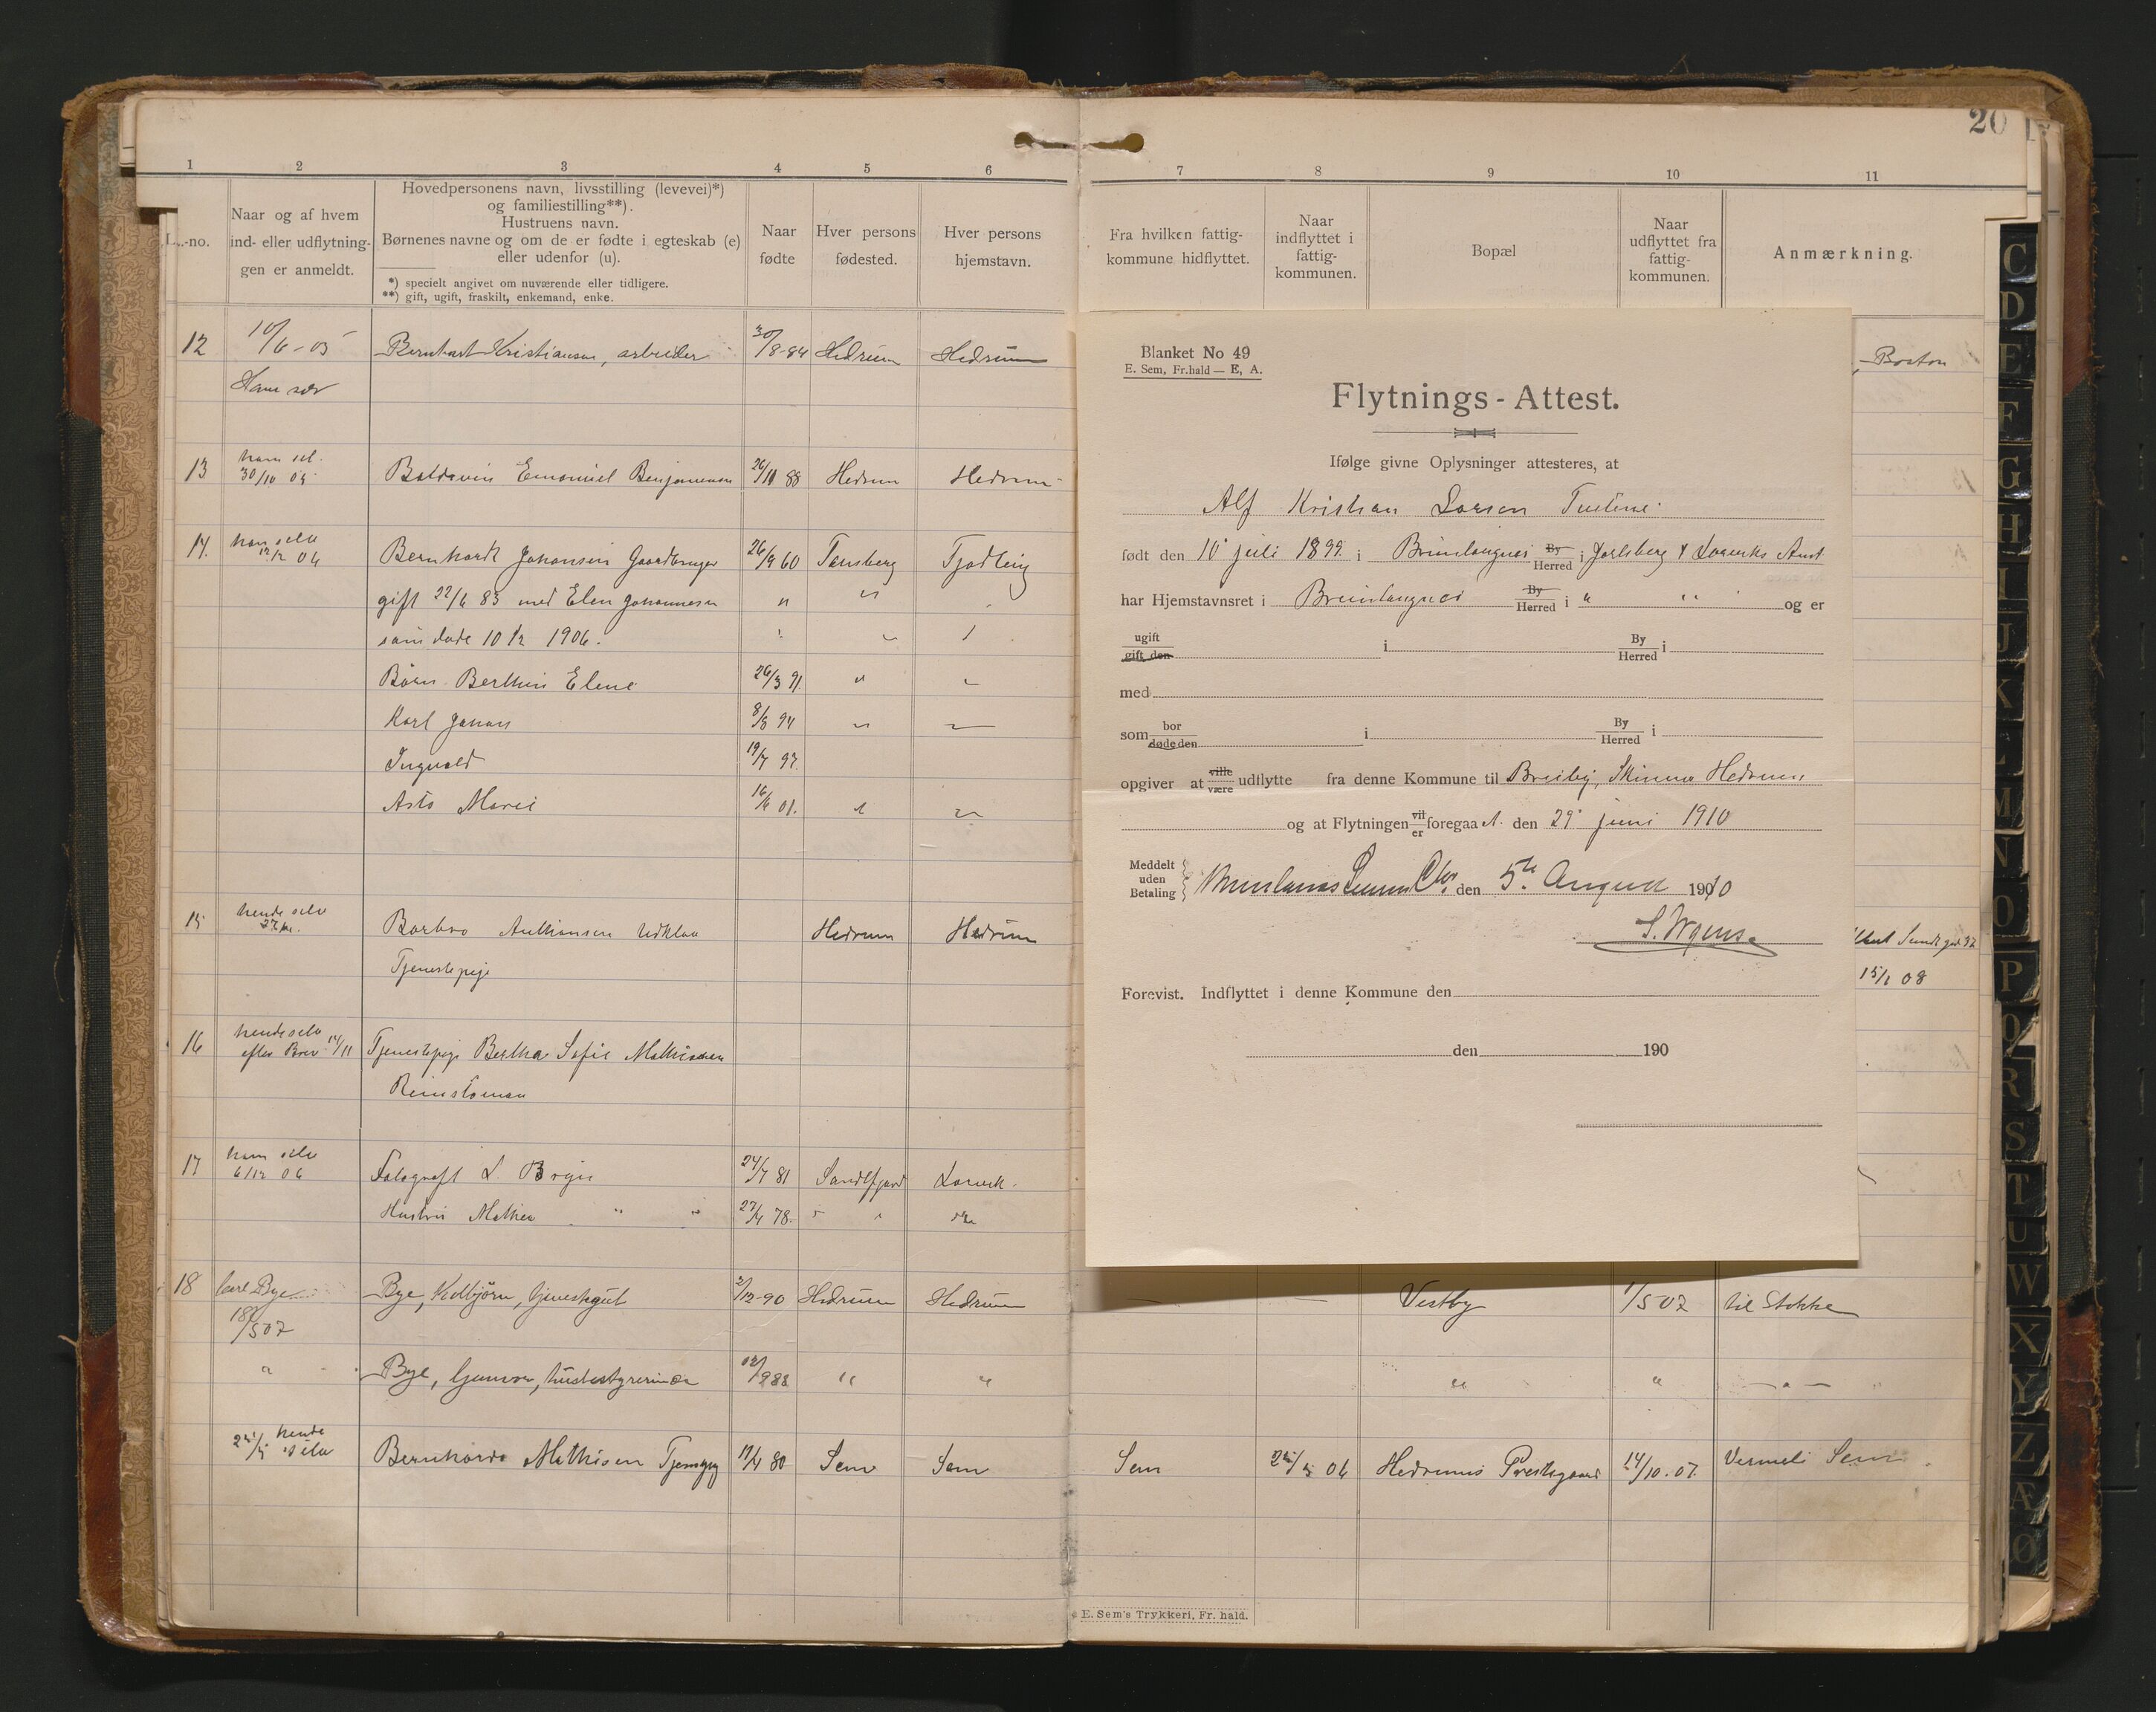 20
1 2 3 4 5 6
L.-no.
Naar og af hvem ind- eller udflytning- gen er anmeldt.
Hovedpersonens navn, livsstilling (levevei)*)
og familiestilling**).
Hustruens navn.
Børnenes navne og om de er fødte i egteskab (e)
eller udenfor (u).
*) specielt angivet om nuværende eller tidligere.
**) gift, ugift, fraskilt, enkemand, enke.
Naar fødte
Hver persons fødested.
Hver persons hjemstavn.
12 10/6-05 Bernhart Kristiansen, arbeider 30/8-84 Hedrum Hedrum
Ham selv
13 ham sel. 30/10 05 Baldevin Emanuel Benjaminsen 26/10 88 Hedrum Hedrum
14. ham selv 12/12 06 Bernhardt Johansen Gaardbruger 26/9 60 Tønsberg Tjødling
gift 22/6 83 med Elen Johannesen " "
som døde 10/12 1906.
Børn Berthin Elene 26/3 91. " "
Karl Johan 8/8 94 " "
Ingvald 19/7 97.
Asta Marie 16/6 01. " "
15 hende selv Barbro Anthonsen Hedrum Hedrum
Tjenestepige
16 hende selv efter Brev 14/11 Tjenestepige Bertha Sofie Mathisen
17 ham selv 6/12 06 Fotograf L. Bryn 24/7 81 Sandefjord Larvik.
Hustru Mathea " " 27/4 78. " "
18 Carl Bye Bye, Kolbjørn, tjenestegut 2/12-90 Hedrum Hedrum
18/5 07
" Bye, Gunvor, husbestyrerinde 12/9 88 " "
25/5 hende selv Bernharda Mathisen Tjenpig 17/4 80 Sem Sem
7 8 9 10 11
Fra hvilken fattig- kommune hidflyttet.
Naar indflyttet i fattig- kommunen.
Bopæl
Naar udflyttet fra fattig- kommunen.
Anmærkning.
Boston
Blanket No 49
E. Sem, Fr.hald — E, A.
Flytnings-Attest.
Ifølge givne Oplysninger attesteres, at
Alf Kristian Larsen
født den 10 juli 1899 i Brunlangnes By Herred i Jarlsberg & Larviks Amt
har Hjemstavnsret i Brunlangnes By Herred i " " og er
ugift gift den i By Herred i
med
som bor døde den i By Herred i
opgiver at ville være udflytte fra denne Kommune til Breiby, Skinmo Hedrum
og at Flytningen vil er foregaa et. den 29 juni 1910
Meddelt uden Betaling den 5te August 1910
Forevist. Indflyttet i denne Kommune den
den 190
15/1 08
— — Vestby 1/5 07 til Stokke
" " — " —
Sem 25/5 06 Hedrums Prestegaard 14/10. 07. Vermeli Sem
E. Sem's Trykkeri, Fr. hald.
C
D
E
F
G
H
I
J
K
L
M
N
O
P
Q
R
S
T
U
W
X
Y
Z
Æ
Ø